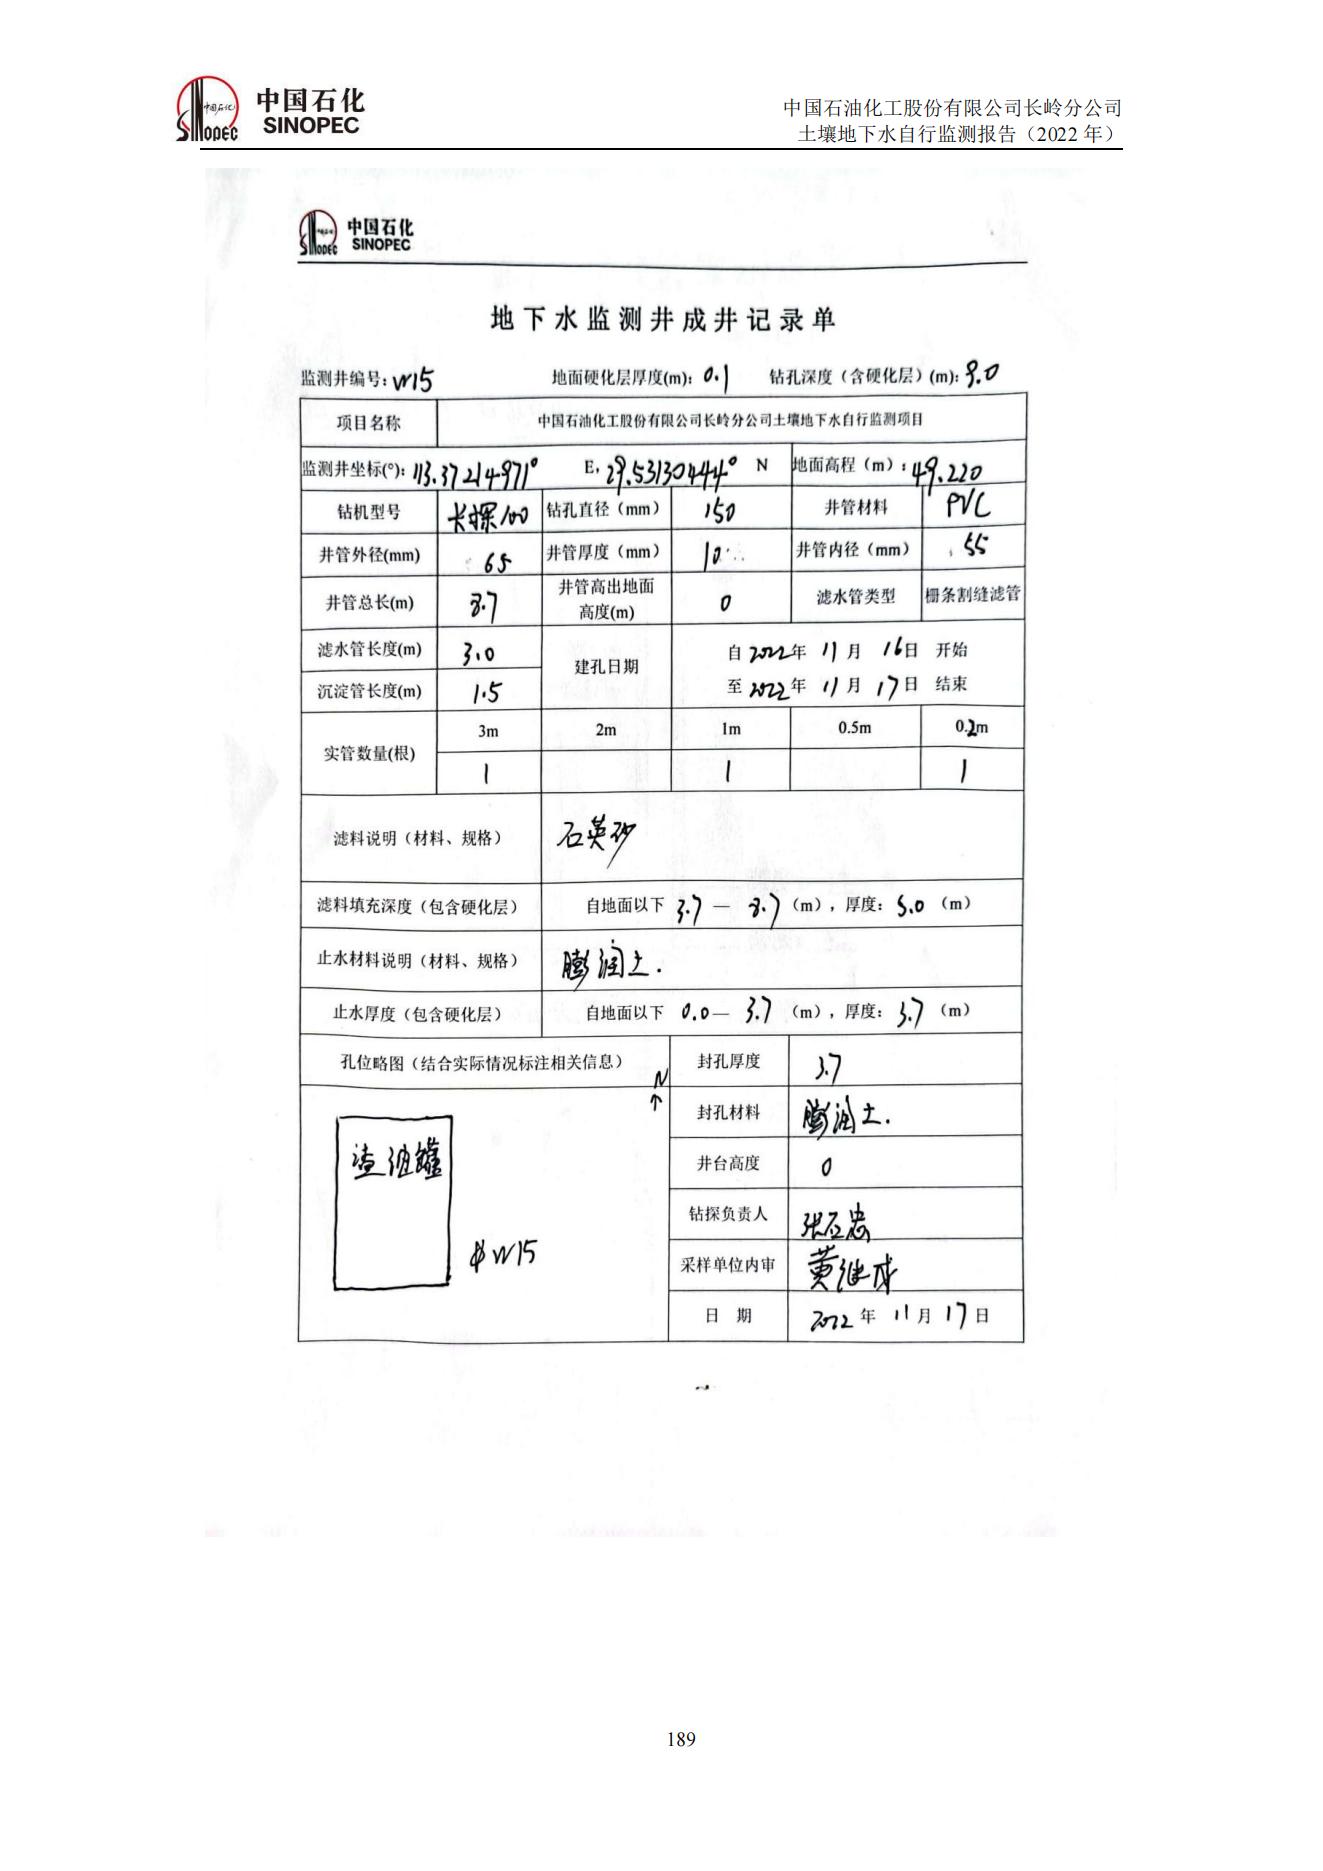 中国石化
SINOPEC
中国石油化工股份有限公司长岭分公司
土壤地下水自行监测报告（2022 年）
中国石化
SINOPEC
地下水监测井成井记录单
监测井编号: W15 地面硬化层厚度(m): 0.1 钻孔深度（含硬化层）(m): 9.0
项目名称 中国石油化工股份有限公司长岭分公司土壤地下水自行监测项目
监测井坐标(°): 113.37214971° E, 29.53130444° N 地面高程（m）: 49.220
钻机型号 长探100 钻孔直径（mm） 150 井管材料 PVC
井管外径(mm) 65 井管厚度（mm） 10 井管内径（mm） 55
井管总长(m) 8.7 井管高出地面高度(m) 0 滤水管类型 栅条割缝滤管
滤水管长度(m) 3.0 建孔日期 自 2022 年 11 月 16 日 开始
沉淀管长度(m) 1.5 至 2022 年 11 月 17 日 结束
实管数量(根) 3m 2m 1m 0.5m 0.2m
1 1 1
滤料说明（材料、规格） 石英砂
滤料填充深度（包含硬化层） 自地面以下 3.7 — 8.7（m），厚度: 5.0（m）
止水材料说明（材料、规格） 膨润土.
止水厚度（包含硬化层） 自地面以下 0.0 — 3.7（m），厚度: 3.7（m）
孔位略图（结合实际情况标注相关信息） 封孔厚度 3.7
N
封孔材料 膨润土.
渣油罐
井台高度 0
钻探负责人
W15
采样单位内审 黄继成
日 期 2022 年 11 月 17 日
189